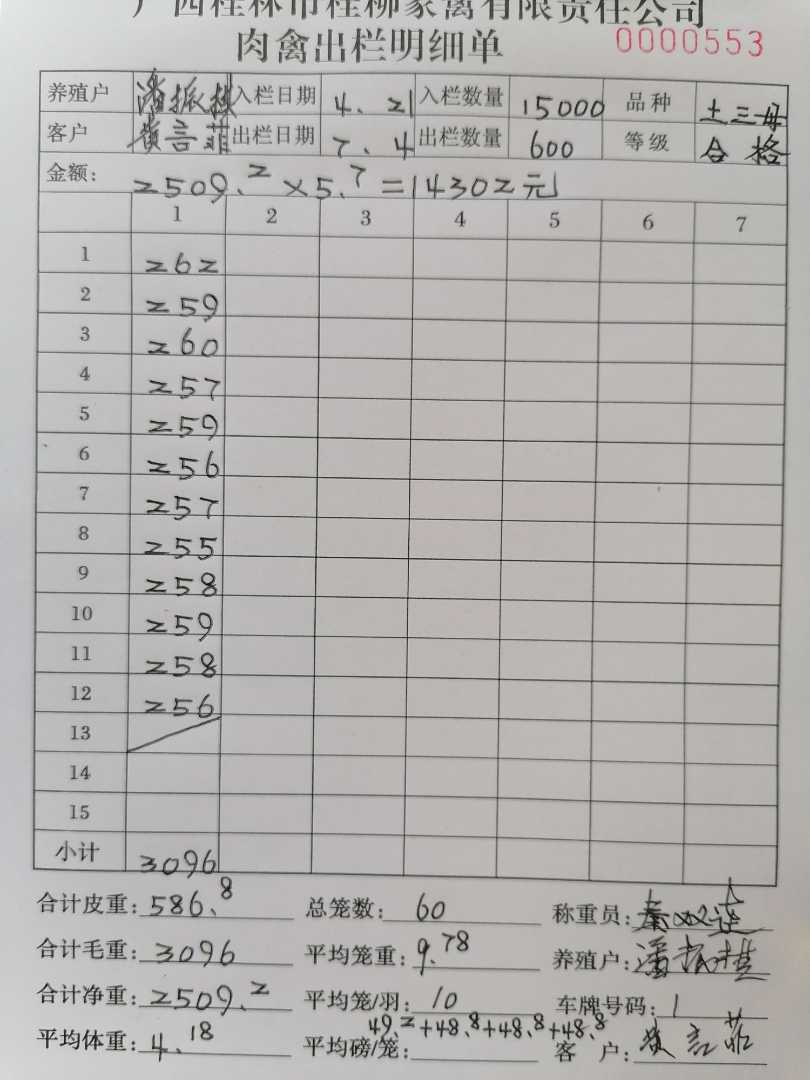 广西桂林市桂柳家禽有限责任公司
肉禽出栏明细单 0000553
养殖户 潘振桂 入栏日期 4.21 入栏数量 15000 品种 土三母
客户 黄言菲 出栏日期 7.4 出栏数量 600 等级 合格
金额: 2509.2×5.7=14302元
1 2 3 4 5 6 7
1 262
2 259
3 260
4 257
5 259
6 256
7 257
8 255
9 258
10 259
11 258
12 256
13
14
15
小计 3096
合计皮重: 586.8 总笼数: 60 称重员:
合计毛重: 3096 平均笼重: 9.78 养殖户: 潘振桂
合计净重: 2509.2 平均笼/羽: 10 车牌号码: 1
平均体重: 4.18 平均磅/笼: 49.2+48.8+48.8+48.8 客户: 黄言菲